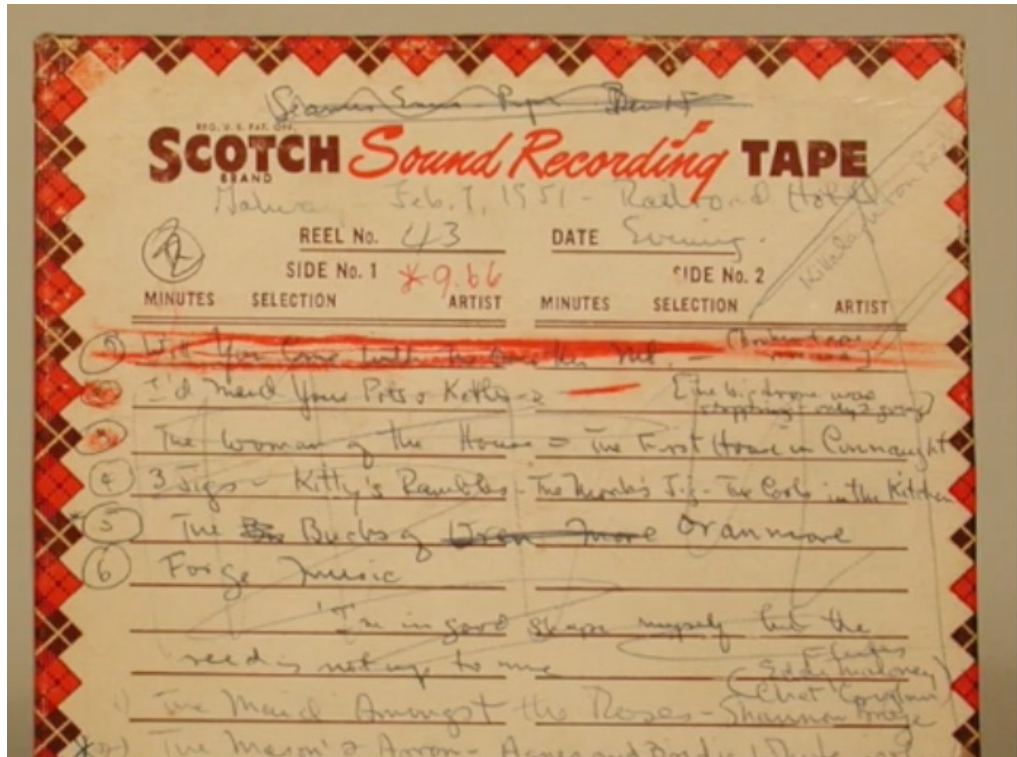 Seamus Ennis Pipes
REG. U.S. PAT. OFF.
SCOTCH Sound Recording TAPE
BRAND
Galway Feb. 7, 1951 - Railroad Hotel
REEL No. 43 DATE Evening.
SIDE No. 1 *9.66 SIDE No. 2
MINUTES SELECTION ARTIST MINUTES SELECTION ARTIST
Will You Come with me over the
I'd Mend Your Pots & Kettles [the big drone was
stopping - only 2 going]
The Woman of the House = The First House in Connaught
4 3 Jigs - Kitty's Rambles - The Monk's Jig - The Cook in the Kitchen
*5 The Bucks of Oran more Oranmore
6 Forge Music
'I'm in good shape myself but the
reed is not up to me
Flutes
Eddie Maloney
1) The Maid Amongst the Roses - Shannon Bridge
The Mason's Apron - Agnes and